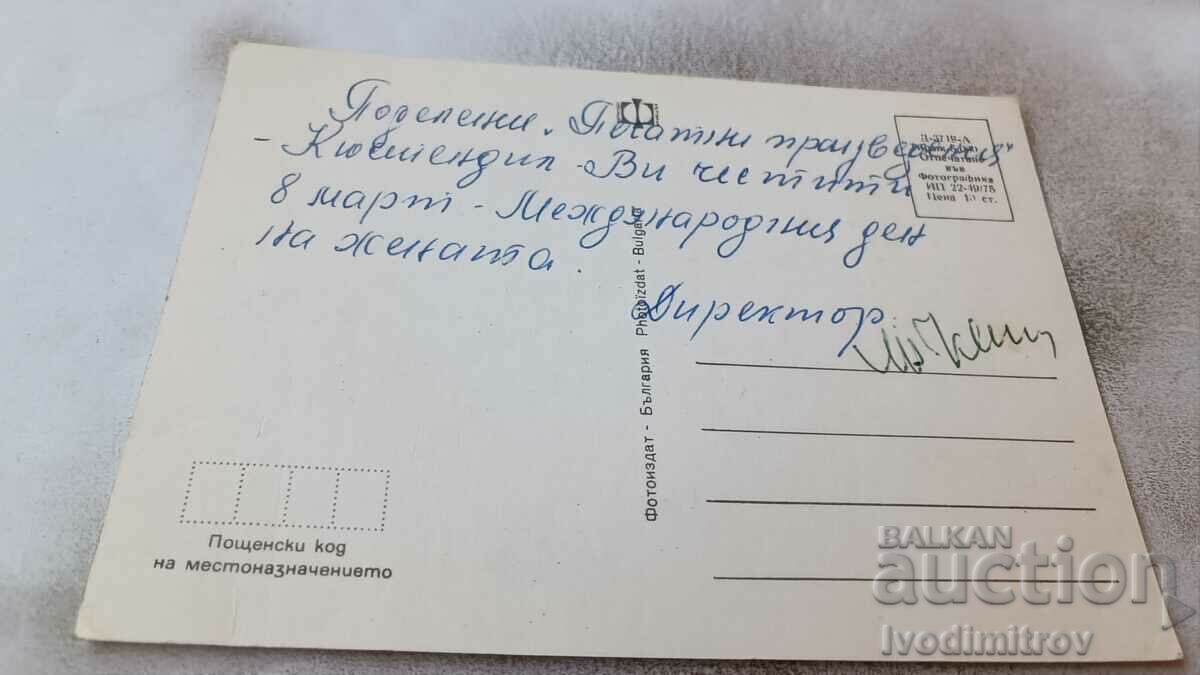 Поделени "Печатни произведения"
- Кюстендил - Ви честити
8 март - Международния ден
на жената.
Директор
П-3719-А
Отпечатано
във
Фотографика
ИП 22-49/75
Цена 15 ст.
Фотоиздат - България Photoizdat - Bulgaria
Пощенски код
на местоназначението
BALKAN
auction
Ivodimitrov